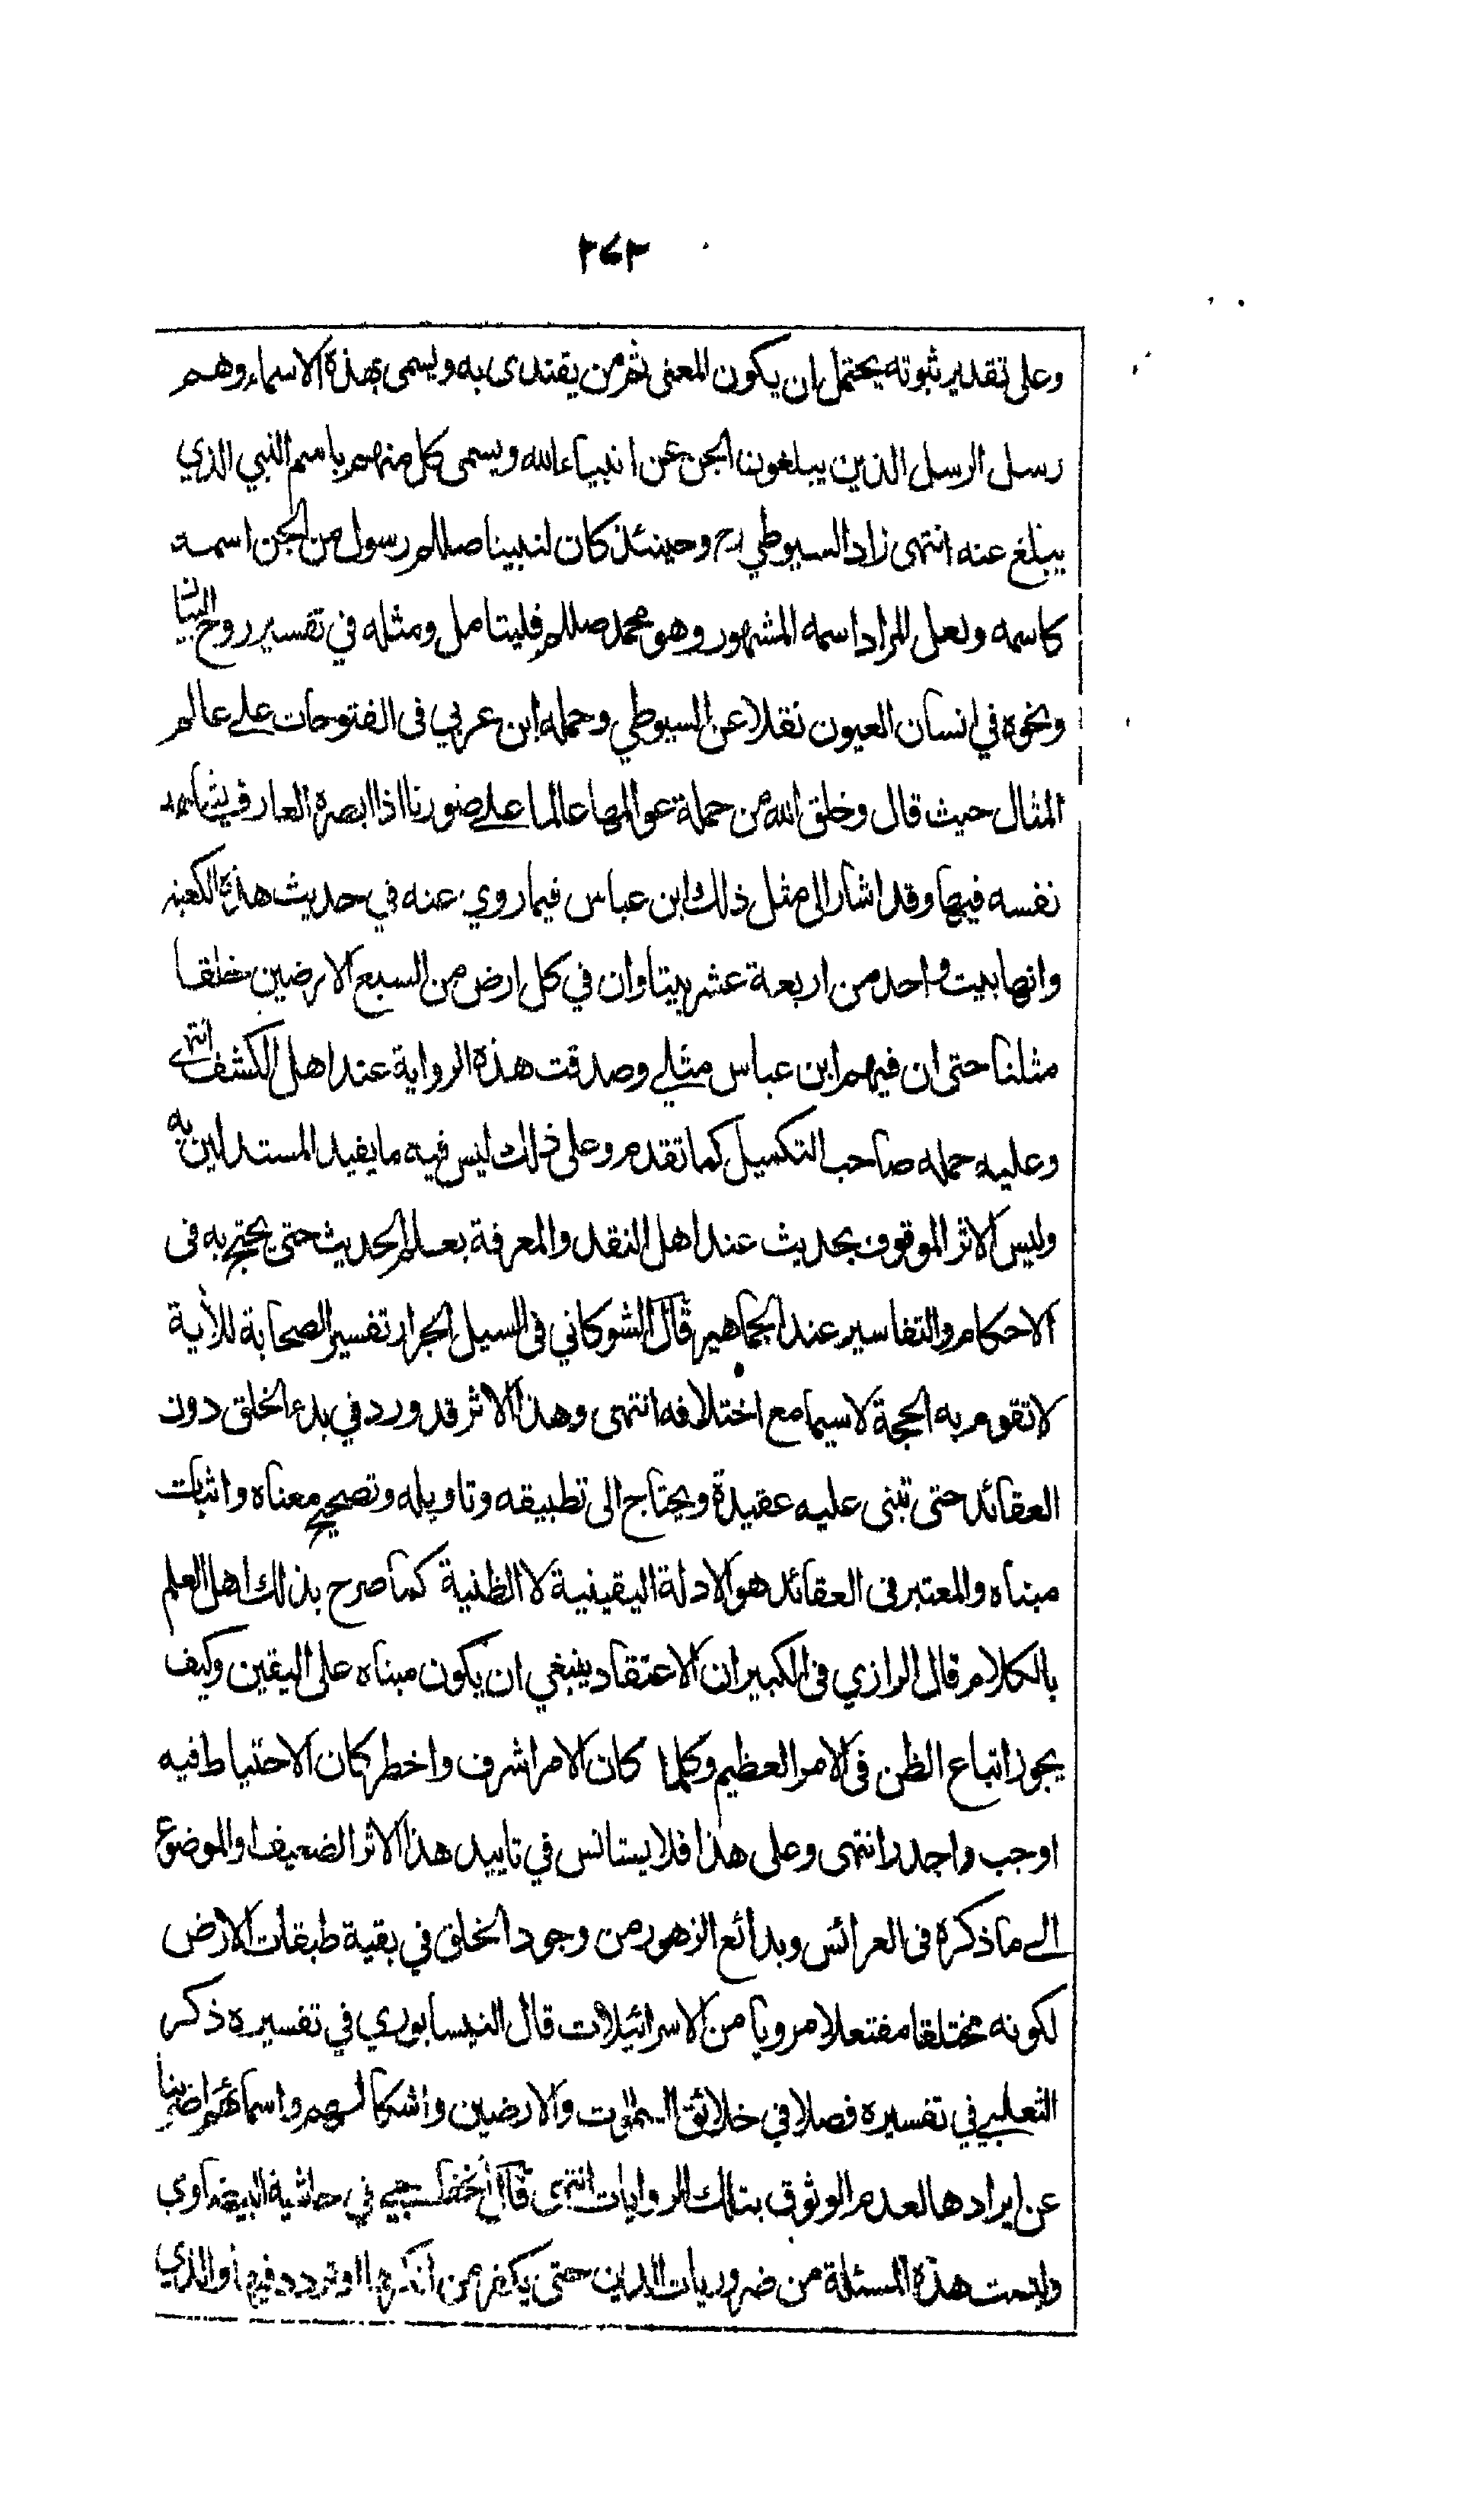 ٢٧٢
وعلى تقدير ثبوته يحتمل ان يكون المعنى ثم من يقتدى به ويسمى بهذه الاسماء وهم
رسل الرسل الذين يبلغون الجن عن انبياء الله ويسمى كل منهم باسم النبي الذي
يبلغ عنه انتهى زاد السيوطي رح وحينئذ كان لنبينا صللم رسول من الجن اسمه
كاسمه ولعل المراد اسمه المشهور وهو محمد صللم فليتامل ومثله في تفسير روح البيان
ونحوه في انسان العيون نقلا عن السيوطي وحمله ابن عربي فى الفتوحات على عالم
المثال حيث قال وخلق الله من جملة عوالمها عالما على صورنا اذا ابصره العارف يشاهد
نفسه فيها وقد اشار الى مثل ذلك ابن عباس فيما روي عنه في حديث هذه الكعبة
وانها بيت واحد من اربعة عشر بيتا وان في كل ارض من السبع الارضين خلقا
مثلنا حتى ان فيهم ابن عباس مثلي وصدقت هذه الرواية عند اهل الكشف انتهى
وعليه حمله صاحب التكميل كما تقدم وعلى ذلك ليس فيه ما يفيد المستدلين به
وليس الاثر الموقوف بحديث عند اهل النقد والمعرفة بعلم الحديث حتى يحتج به فى
الاحكام والتفاسير عند الجماهير قال الشوكاني فى السيل الجرار تفسير الصحابة للأية
لا تقوم به الحجة لا سيما مع اختلافه انتهى وهذا الاثر قد ورد في بدء الخلق دون
العقائد حتى تبنى عليه عقيدة ويحتاج الى تطبيقه وتاويله وتصحيح معناه واثبات
مبناه والمعتبر فى العقائد هو الادلة اليقينية لا الظنية كما صرح بذلك اهل العلم
بالكلام قال الرازي فى الكبير ان الاعتقاد ينبغي ان يكون مبناه على اليقين وكيف
يجوز اتباع الظن فى الامر العظيم وكلما كان الامر اشرف واخطر كان الاحتياط فيه
اوجب واجدر انتهى وعلى هذا فلا يستانس في تاييد هذا الاثر الضعيف او الموضوع
الى ما ذكره فى العرائس وبدائع الزهور من وجود الخلق في بقية طبقات الارض
لكونه مختلقا مفتعلا مرويا من الاسرائيلات قال النيسابوري في تفسيره ذكر
الثعلبي في تفسيره فصلا في خلائق السموت والارضين واشكالهم واسمائهم اضربنا
عن ايرادها لعدم الوثوق بتلك الروايات انتهى قال الخفاجي في حاشية البيضاوي
وليست هذه المسئلة من ضروريات الدين حتى يكفر من انكرها او تردد فيها والذي